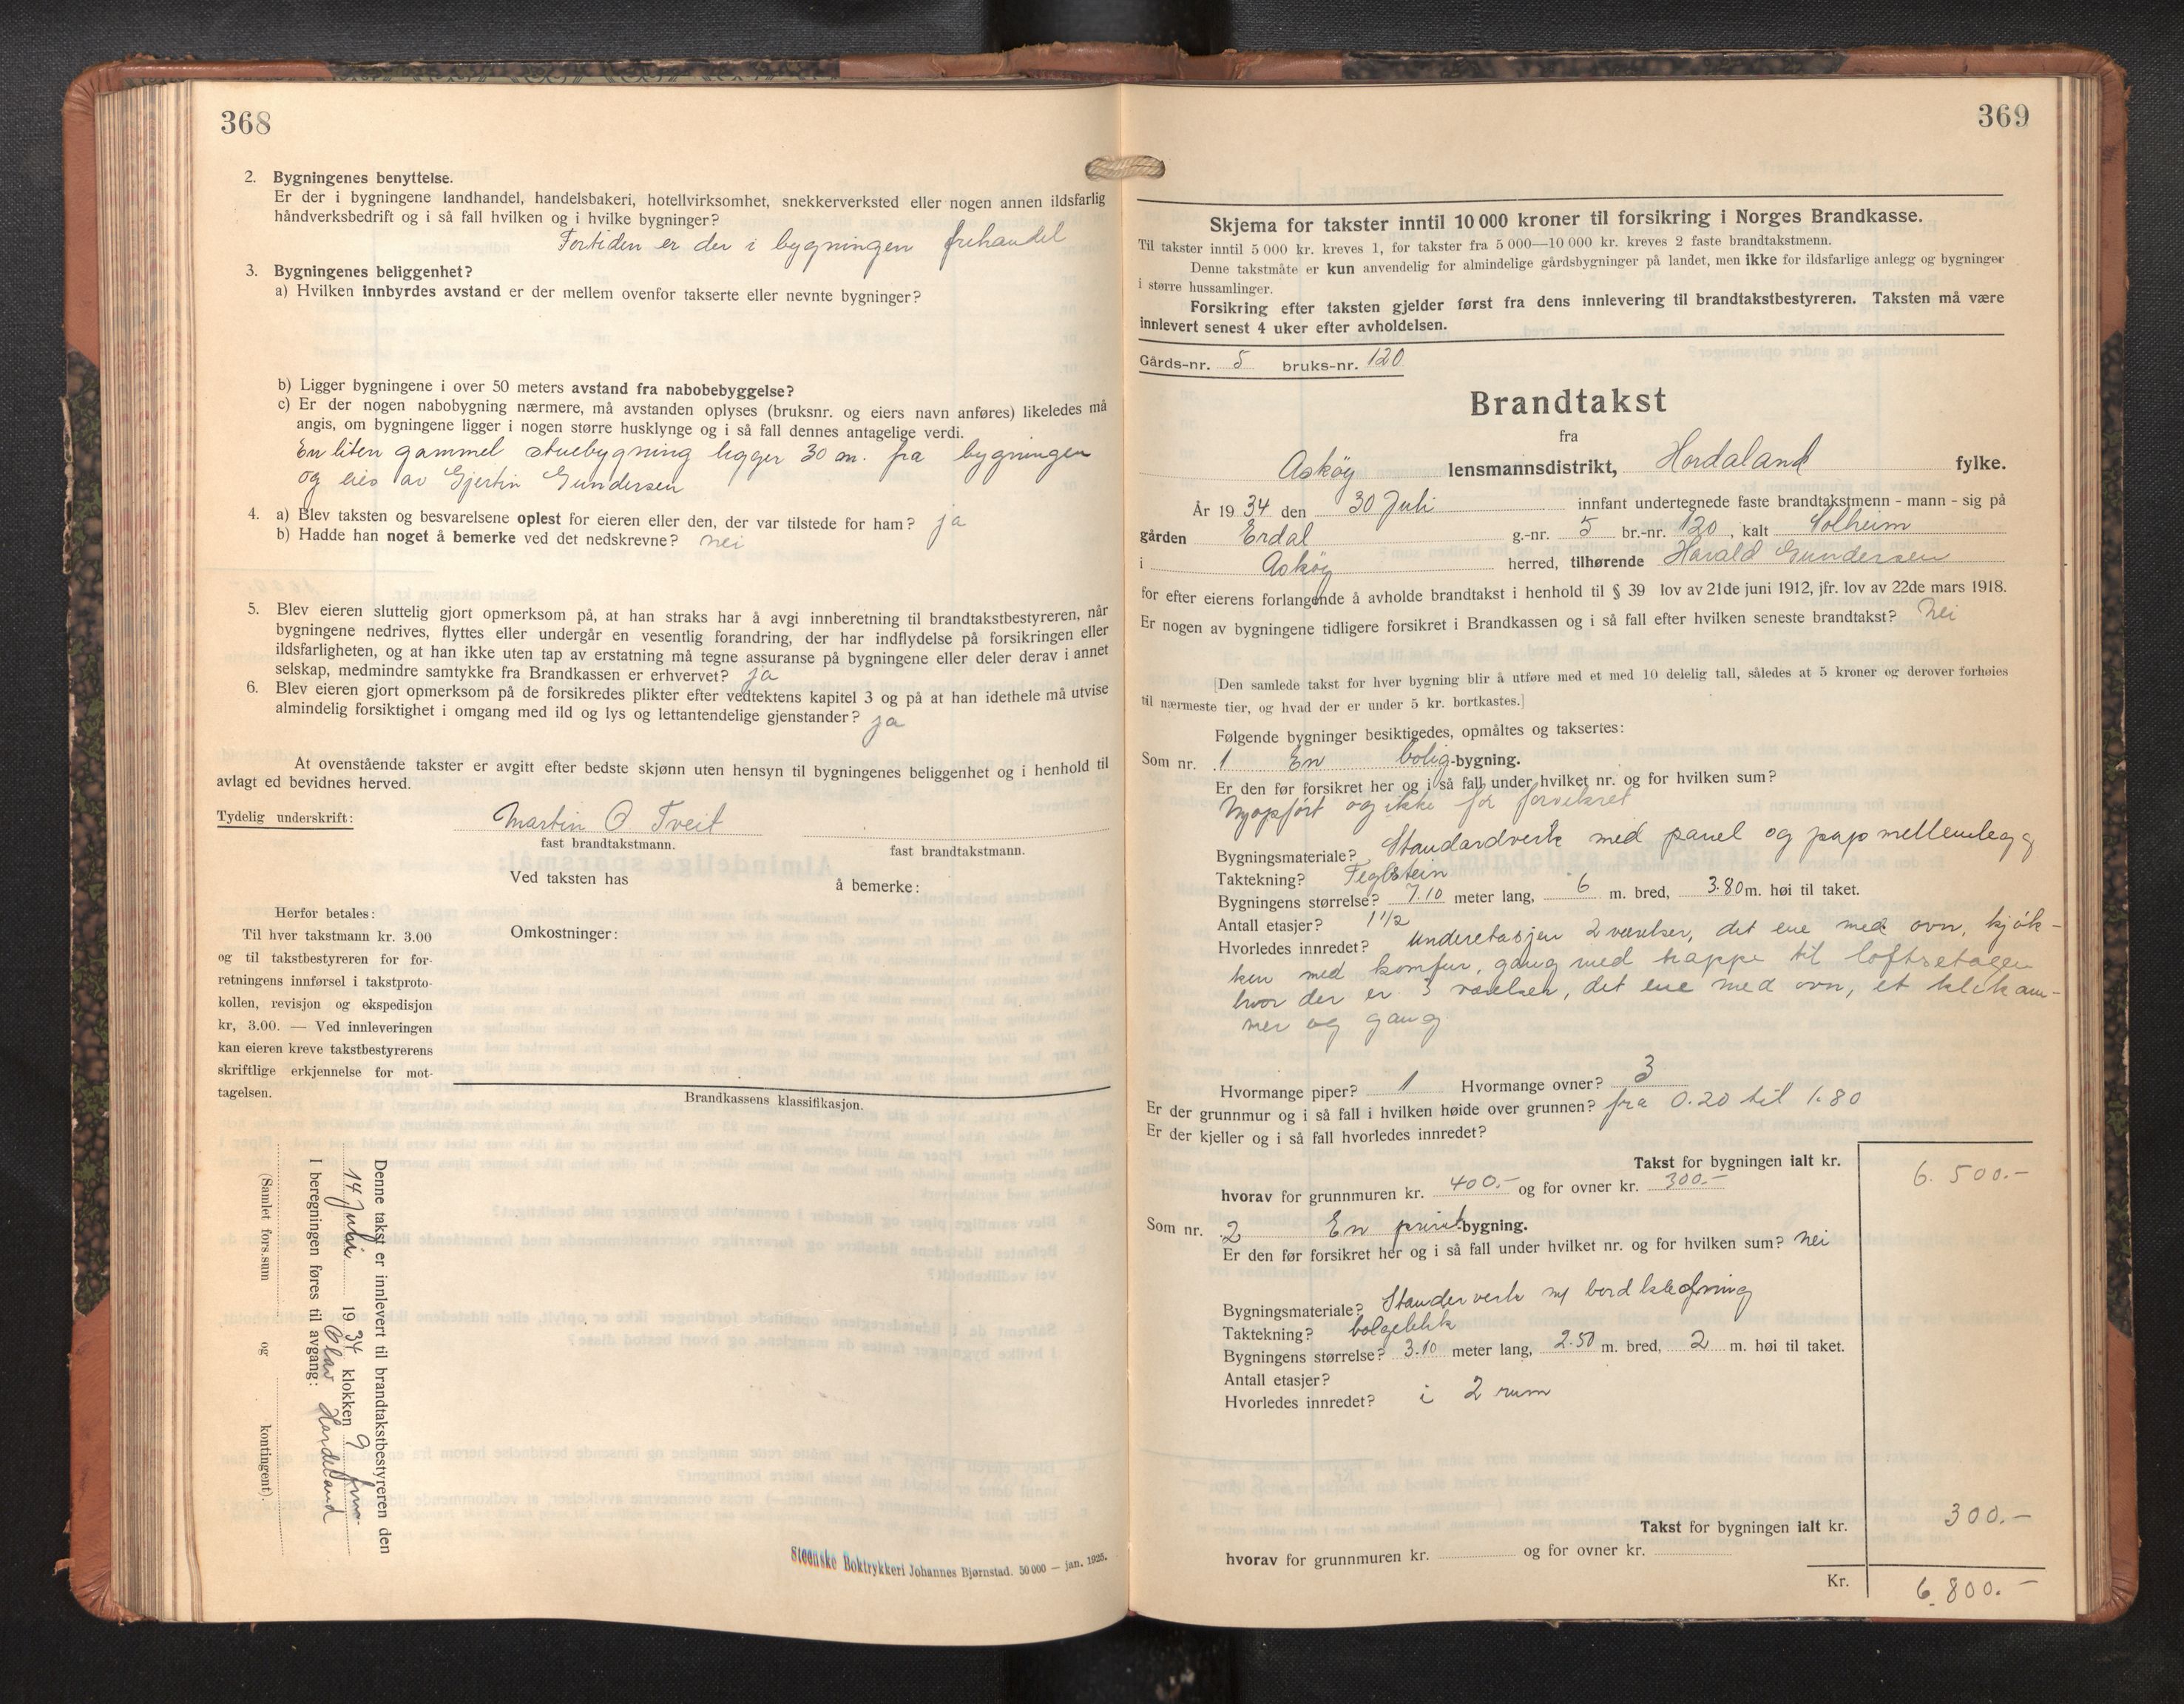 368
2. Bygningenes benyttelse.
Er der i bygningene landhandel, handelsbakeri, hotellvirksomhet, snekkerverksted eller nogen annen ildsfarlig
håndverksbedrift og i så fall hvilken og i hvilke bygninger?
Fortiden er der i bygningen frihandel
3. Bygningenes beliggenhet?
a) Hvilken innbyrdes avstand er der mellem ovenfor takserte eller nevnte bygninger?
b) Ligger bygningene i over 50 meters avstand fra nabobebyggelse?
c) Er der nogen nabobygning nærmere, må avstanden oplyses (bruksnr. og eiers navn anføres) likeledes må
angis, om bygningene ligger i nogen større husklynge og i så fall dennes antagelige verdi.
En liten gammel stuebygning ligger 30 m. fra bygningen
og eies av Gjertin Gundersen
4. a) Blev taksten og besvarelsene oplest for eieren eller den, der var tilstede for ham? ja
b) Hadde han noget å bemerke ved det nedskrevne? nei
5. Blev eieren sluttelig gjort opmerksom på, at han straks har å avgi innberetning til brandtakstbestyreren, når
bygningene nedrives, flyttes eller undergår en vesentlig forandring, der har indflydelse på forsikringen eller
ildsfarligheten, og at han ikke uten tap av erstatning må tegne assuranse på bygningene eller deler derav i annet
selskap, medmindre samtykke fra Brandkassen er erhvervet? ja
6. Blev eieren gjort opmerksom på de forsikredes plikter efter vedtektens kapitel 3 og på at han idethele må utvise
almindelig forsiktighet i omgang med ild og lys og lettantendelige gjenstander? ja
At ovenstående takster er avgitt efter bedste skjønn uten hensyn til bygningenes beliggenhet og i henhold til
avlagt ed bevidnes herved.
Tydelig underskrift: Martin O Tveit
fast brandtakstmann. fast brandtakstmann.
Ved taksten has å bemerke:
Herfor betales:
Til hver takstmann kr. 3.00
og til takstbestyreren for for-
retningens innførsel i takstproto-
kollen, revisjon og ekspedisjon
kr, 3.00. — Ved innleveringen
kan eieren kreve takstbestyrerens
skriftlige erkjennelse for mot-
tagelsen.
Omkostninger:
Brandkassens klassifikasjon.
Denne takst er innlevert til brandtakstbestyreren den
14 Juli 1934 klokken 9 fm.
Olav Hordeland
I beregningen føres til avgang:
(Samlet fors.sum og kontingent).
Steenske Boktrykkeri Johannes Bjørnstad. 50 000 — jan. 1925.
369
Skjema for takster inntil 10 000 kroner til forsikring i Norges Brandkasse.
Til takster inntil 5 000 kr. kreves 1, for takster fra 5 000—10 000 kr. kreves 2 faste brandtakstmenn.
Denne takstmåte er kun anvendelig for almindelige gårdsbygninger på landet, men ikke for ildsfarlige anlegg og bygninger
i større hussamlinger.
Forsikring efter taksten gjelder først fra dens innlevering til brandtakstbestyreren. Taksten må være
innlevert senest 4 uker efter avholdelsen.
Gårds-nr. 5 bruks-nr. 120
Brandtakst
fra
Askøy lensmannsdistrikt, Hordaland fylke.
År 1934 den 30 Juli innfant undertegnede faste brandtakstmenn - mann - sig på
gården Erdal g.-nr. 5 br.-nr. 120, kalt Solheim
i Askøy herred, tilhørende Harald Gundersen
for efter eierens forlangende å avholde brandtakst i henhold til § 39 lov av 21de juni 1912, jfr. lov av 22de mars 1918.
Er nogen av bygningene tidligere forsikret i Brandkassen og i så fall efter hvilken seneste brandtakst? Nei
[Den samlede takst for hver bygning blir å utføre med et med 10 delelig tall, således at 5 kroner og derover forhøies
til nærmeste tier, og hvad der er under 5 kr. bortkastes.]
Følgende bygninger besiktigedes, opmåltes og taksertes:
Som nr. 1 En bolig-bygning.
Er den før forsikret her og i så fall under hvilket nr. og for hvilken sum?
Nyopført og ikke før forsikret
Bygningsmateriale? Standardverk med panel og papmellemlegg
Taktekning? Teglstein
Bygningens størrelse? 7.10 meter lang, 6 m. bred, 3.80 m. høi til taket.
Antall etasjer? 1 1/2
Hvorledes innredet? Underetasjen 2 værelser, det ene med ovn, kjøk-
ken med komfur, gang med trappe til loftsetagen
hvor der er 3 værelser, det ene med ovn, et klekam-
mer og gang.
Hvormange piper? 1 Hvormange ovner? 3
Er der grunnmur og i så fall i hvilken høide over grunnen? fra 0.20 til 1.80
Er der kjeller og i så fall hvorledes innredet?
Takst for bygningen ialt kr. 6.500.-
hvorav for grunnmuren kr. 400.- og for ovner kr. 300.-
Som nr. 2 En privé-bygning.
Er den før forsikret her og i så fall under hvilket nr. og for hvilken sum? Nei
Bygningsmateriale? Standerverk m/ bordklædning
Taktekning? bølgeblikk
Bygningens størrelse? 3.10 meter lang, 2.50 m. bred, 2 m. høi til taket.
Antall etasjer?
Hvorledes innredet? i 2 rum
Takst for bygningen ialt kr. 300.-
hvorav for grunnmuren kr. og for ovner kr.
Kr. 6.800.-